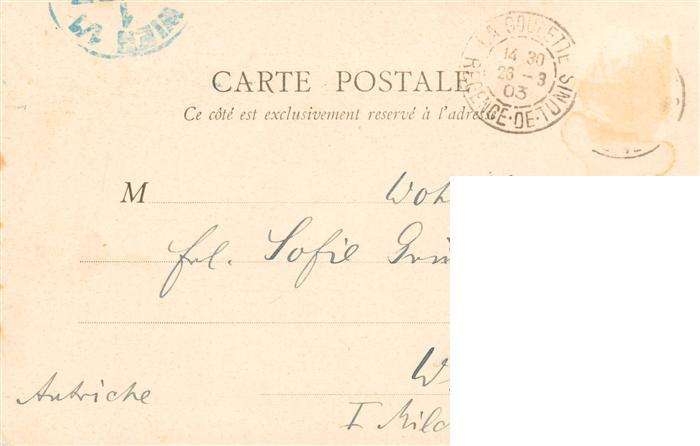 WIEN
CARTE POSTALE
Ce côté est exclusivement reservé à l'adresse
LA GOULETTE
14 30
23 -3
03
REGENCE-DE-TUNIS
M Woh
frl. Sofie Grü
W
Autriche
I Milc